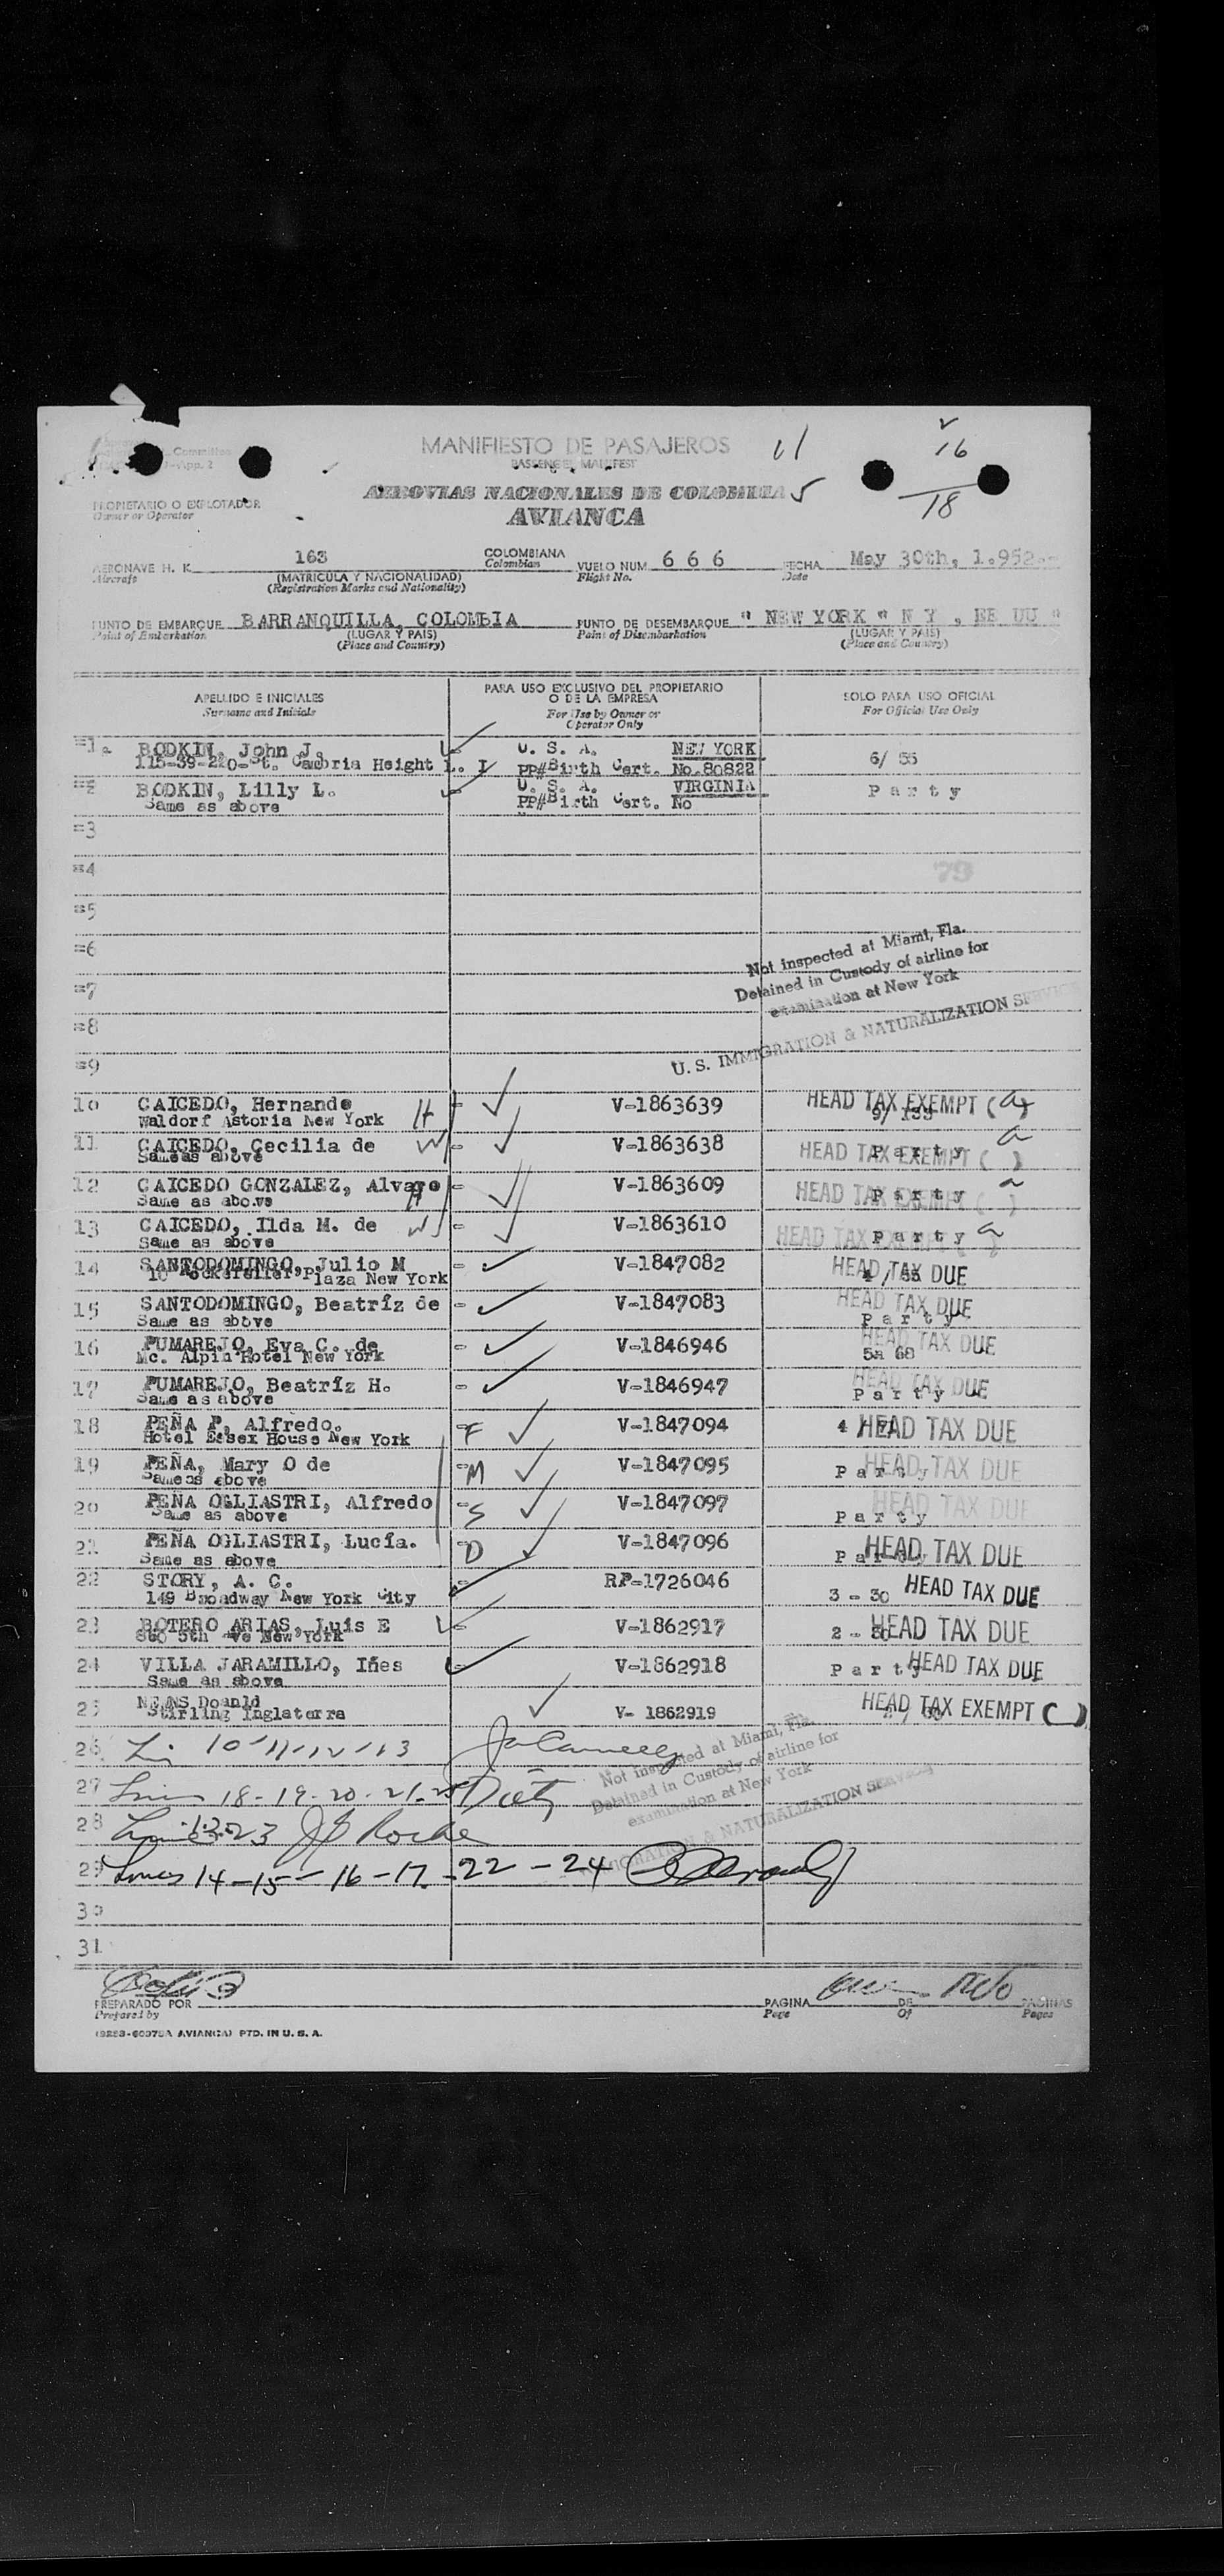 MANIFIESTO DE PASAJEROS
PASSENGER MANIFEST
11
16
18
AEROVIAS NACIONALES DE COLOMBIA
5
AVIANCA
PROPIETARIO O EXPLOTADOR
Owner or Operator
AERONAVE H. K. 163 COLOMBIANA VUELO NUM 6 6 6 FECHA May 30th, 1.952.-
Aircraft (MATRICULA Y NACIONALIDAD) Colombian Flight No. Date
(Registration Marks and Nationality)
PUNTO DE EMBARQUE BARRANQUILLA, COLOMBIA PUNTO DE DESEMBARQUE " NEW YORK " N Y , EE UU "
Point of Embarkation (LUGAR Y PAIS) Point of Disembarkation (LUGAR Y PAIS)
(Place and Country) (Place and Country)
APELLIDO E INICIALES PARA USO EXCLUSIVO DEL PROPIETARIO O DE LA EMPRESA SOLO PARA USO OFICIAL
Surname and Initials For Use by Owner or Operator Only For Official Use Only
=1 BODKIN, John J. U. S. A. NEW YORK 6/ 55
115-39-220-St. Cambria Height L. I PP#Birth Cert. No.80822
=2 BODKIN, Lilly L. U. S. A. VIRGINIA P a r t y
Same as above PP#Birth Cert. No
=3
=4 79
=5
=6
Not inspected at Miami, Fla.
=7 Detained in Custody of airline for
examination at New York
=8
=9 U. S. IMMIGRATION & NATURALIZATION SERVICE
10 CAICEDO, Hernando H V-1863639 HEAD TAX EXEMPT ( a )
Waldorf Astoria New York
11 CAICEDO, Cecilia de W V-1863638 P a r t y HEAD TAX EXEMPT ( ) a
Same as above
12 CAICEDO GONZALEZ, Alvaro H V-1863609 P a r t y HEAD TAX EXEMPT ( ) a
Same as above
13 CAICEDO, Ilda M. de W V-1863610 P a r t y HEAD TAX EXEMPT ( ) a
Same as above
14 SANTODOMINGO, Julio M V-1847082 HEAD TAX DUE
10 Rockefeller Plaza New York
15 SANTODOMINGO, Beatríz de V-1847083 HEAD TAX DUE
Same as above P a r t y
16 PUMAREJO, Eva C. de V-1846946 HEAD TAX DUE
Mc. Alpin Hotel New York 5a 68
17 PUMAREJO, Beatríz H. V-1846947 HEAD TAX DUE
Same as above P a r t y
18 PEÑA P, Alfredo. F V-1847094 HEAD TAX DUE
Hotel Essex House New York
19 PEÑA, Mary O de M V-1847095 P a r t y HEAD TAX DUE
Same as above
20 PEÑA OGLIASTRI, Alfredo S V-1847097 HEAD TAX DUE
Same as above P a r t y
21 PEÑA OGLIASTRI, Lucía. D V-1847096 P a r t y HEAD TAX DUE
Same as above
22 STORY, A. C. RP-1726046 3 - 30 HEAD TAX DUE
149 Broadway New York City
23 BOTERO ARIAS, Luis E V-1862917 HEAD TAX DUE
5th Ave New York
24 VILLA JARAMILLO, Iñes V-1862918 P a r t y HEAD TAX DUE
Same as above
25 Doanld V- 1862919 HEAD TAX EXEMPT ( )
Stirling Inglaterra
26 10-11-12-13
Not inspected at Miami, Fla.
Detained in Custody of airline for
examination at New York
27 Lines 18-19-20-21-25 Dietz
IMMIGRATION & NATURALIZATION SERVICE
28
29 Lines 14-15-16-17-22-24
30
31
PREPARADO POR PAGINA DE PAGINAS
Prepared by Page Of Pages
AVIANCA) PTD. IN U. S. A.